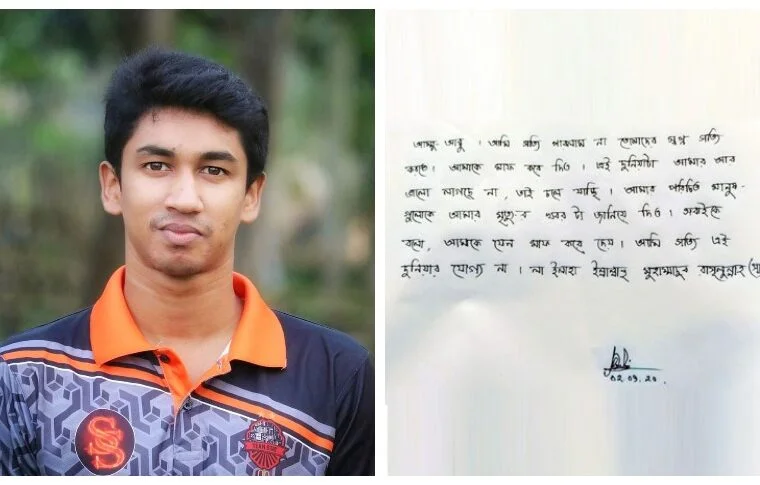 আম্মু-আব্বু। আমি সত্যি পারলাম না তোমাদের স্বপ্ন সত্যি
করতে। আমাকে মাফ করে দিও। এই দুনিয়াটা আমার আর
ভালো লাগছে না, তাই চলে যাচ্ছি। আমার পরিচিত মানুষ-
গুলোকে আমার মৃত্যু-র খবর টা জানিয়ে দিও। সবাইকে
বলো, আমাকে যেন মাফ করে দেয়। আমি সত্যি এই
দুনিয়ার যোগ্য না। লা ইলাহা ইল্লাল্লাহু মুহাম্মাদুর রাসুলুল্লাহ
02.09.20.